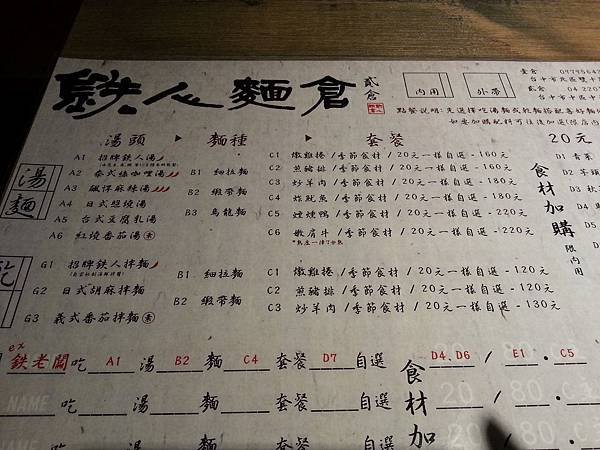 鉄人麵倉 貳倉
內用 外帶
壹倉 0979564
台中市北區雙十
貳倉 04 220
台中市中區
點餐說明:先選擇吃湯麵或乾麵搭配喜好麵
如要加購配料可往後加選(限店內
湯頭 ▶ 麵種 ▶ 套餐 20元
湯麵
A1 招牌鉄人湯
A2 泰式綠咖哩湯
A3 鹹伃麻辣湯
A4 日式柴燒湯
A5 台式豆腐乳湯
A6 紅燒番茄湯 素
B1 細拉麵
B2 緞帶麵
B3 烏龍麵
C1 燉雞捲/季節食材/20元一樣自選-160元
C2 蔥豬排/季節食材/20元一樣自選-160元
C3 炒羊肉/季節食材/20元一樣自選-180元
C4 炸魷魚/季節食材/20元一樣自選-180元
C5 煙燻鴨/季節食材/20元一樣自選-220元
C6 嫩肩牛/季節食材/20元一樣自選-220元
食材加購 限內用
D1 青菜
D2
D3
D4
D5
D
乾
G1 招牌鉄人拌麵
G2 日式胡麻拌麵
G3 義式番茄拌麵 素
B1 細拉麵
B2 緞帶麵
C1 燉雞捲/季節食材/20元一樣自選-120元
C2 蔥豬排/季節食材/20元一樣自選-120元
C3 炒羊肉/季節食材/20元一樣自選-130元
ex
鉄老闆吃 A1 湯 B2 麵 C4 套餐 D7 自選 D4.D6 / E1 · C5
NAME 吃 湯 麵 套餐 自選 20 / 80 ·
NAME 吃 湯 麵 套餐 自選 20 / 80
食材加